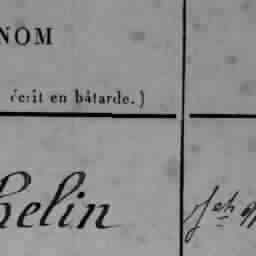 NOM
écrit en bâtarde.)
helin